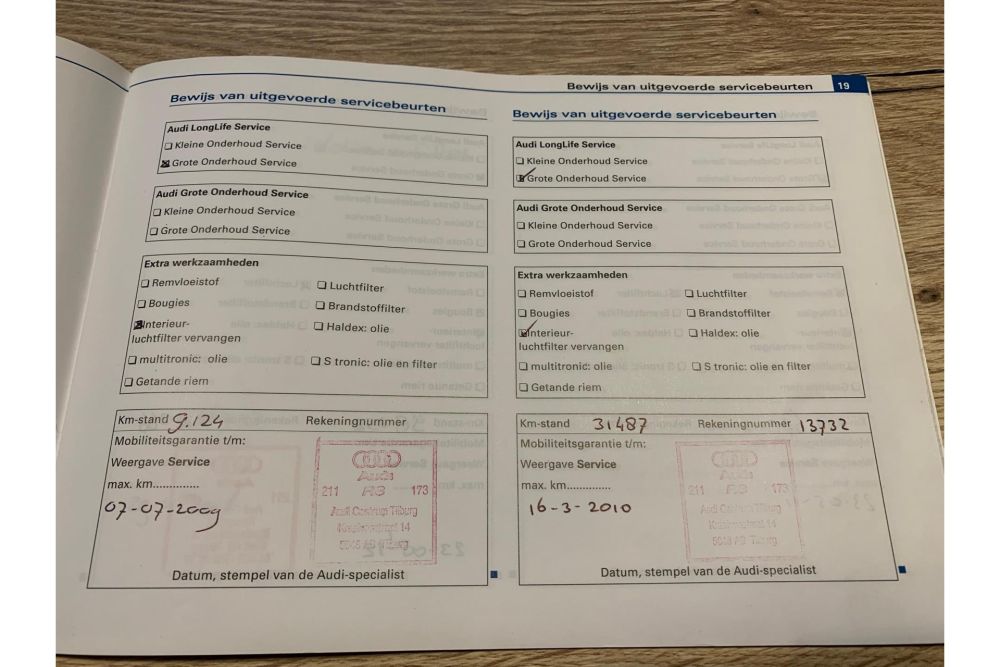 Bewijs van uitgevoerde servicebeurten
Audi LongLife Service
Kleine Onderhoud Service
Grote Onderhoud Service
Audi Grote Onderhoud Service
Kleine Onderhoud Service
Grote Onderhoud Service
Extra werkzaamheden
Remvloeistof
Luchtfilter
Bougies
Brandstoffilter
Interieur-
luchtfilter vervangen
Haldex: olie
multitronic: olie
S tronic: olie en filter
Getande riem
Km-stand 9.124 Rekeningnummer
Mobiliteitsgarantie t/m:
Weergave Service
max. km..............
07-07-2009
Audi
211 R3 173
Audi Centrum Tilburg
14
Tilburg
Datum, stempel van de Audi-specialist
Bewijs van uitgevoerde servicebeurten 19
Bewijs van uitgevoerde servicebeurten
Audi LongLife Service
Kleine Onderhoud Service
Grote Onderhoud Service
Audi Grote Onderhoud Service
Kleine Onderhoud Service
Grote Onderhoud Service
Extra werkzaamheden
Remvloeistof
Luchtfilter
Bougies
Brandstoffilter
Interieur-
luchtfilter vervangen
Haldex: olie
multitronic: olie
S tronic: olie en filter
Getande riem
Km-stand 31487 Rekeningnummer 13732
Mobiliteitsgarantie t/m:
Weergave Service
max. km..............
16-3-2010
Audi
211 R3 173
Audi Centrum Tilburg
14
Tilburg
Datum, stempel van de Audi-specialist